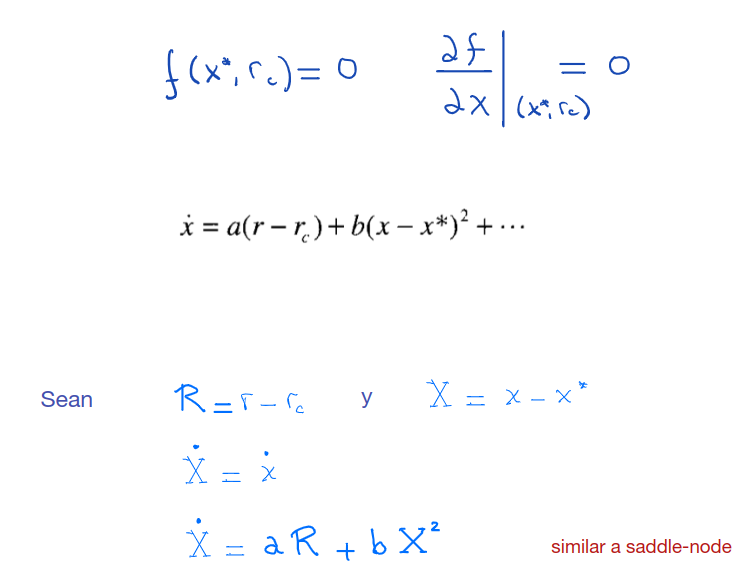 f(x*, r_c) = 0    ∂f/∂x |_(x*, r_c) = 0
ẋ = a(r − r_c) + b(x − x*)² + ⋯
Sean    R = r − r_c    y    X = x − x*
Ẋ = ẋ
Ẋ = aR + bX²    similar a saddle-node